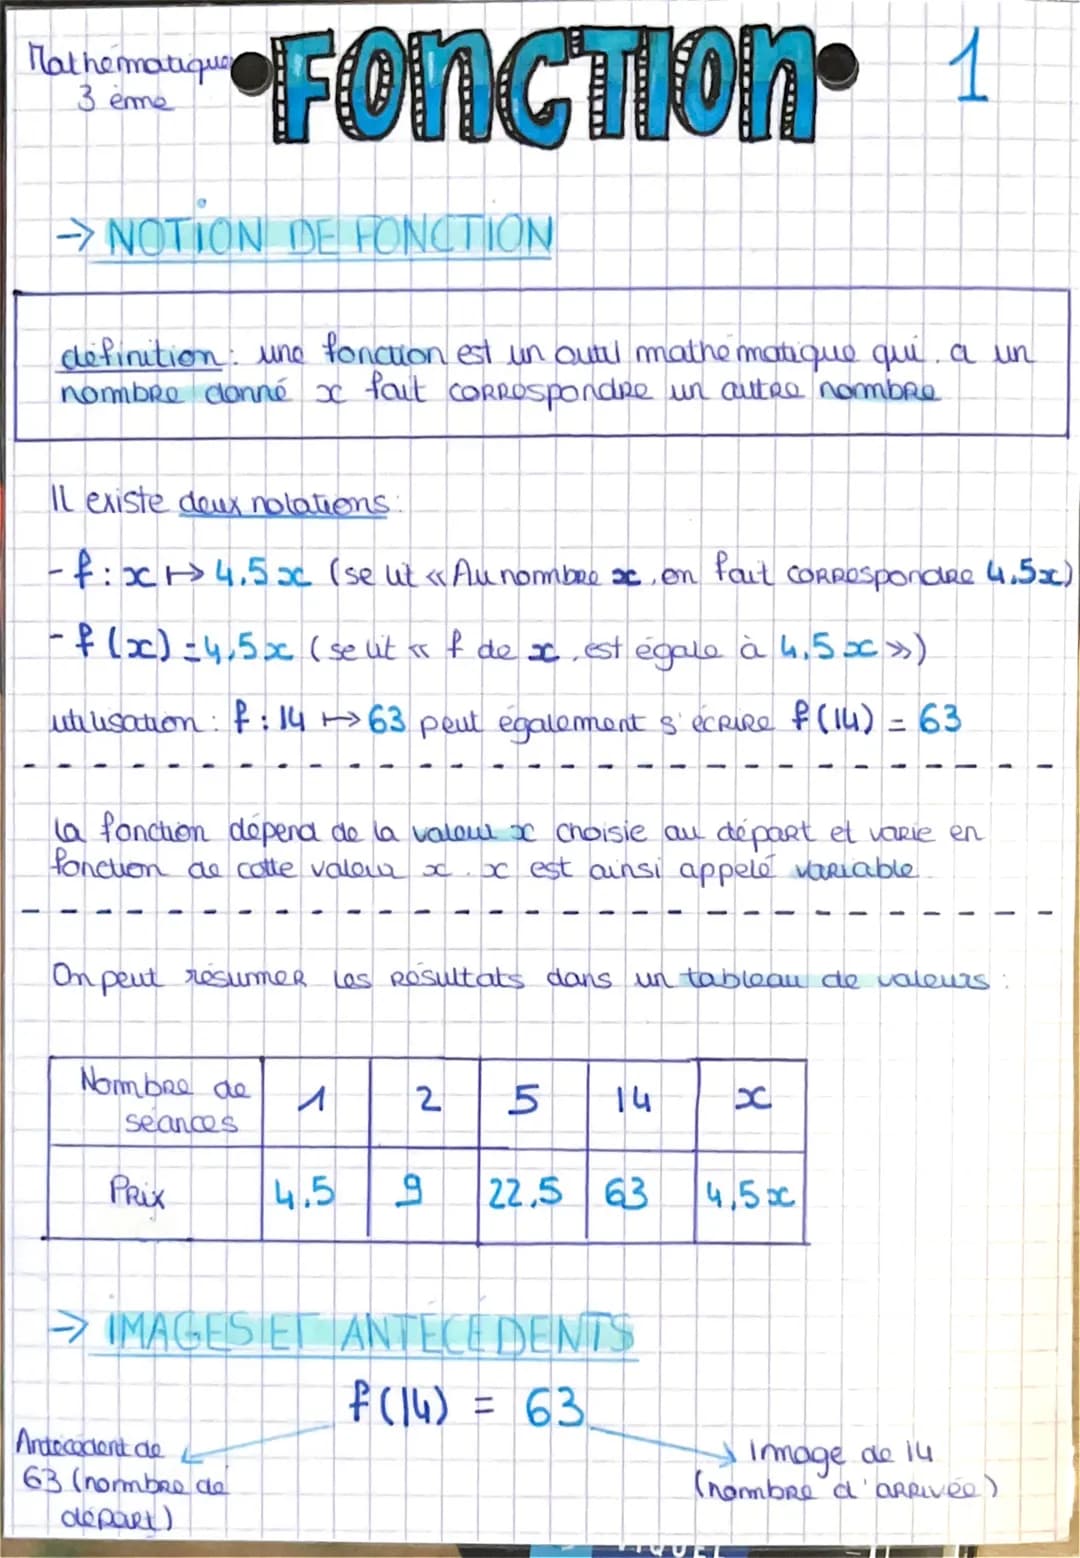 Mathématiques
3 ème
•FONCTION•
1
→ NOTION DE FONCTION
définition : une fonction est un outil mathématique qui, a un
nombre donné x fait correspondre un autre nombre
Il existe deux notations :
- f : x ↦ 4,5x (se lit « Au nombre x, on fait correspondre 4,5x)
- f(x) = 4,5x (se lit « f de x, est égale à 4,5x »)
utilisation : f : 14 ↦ 63 peut également s'écrire f(14) = 63
la fonction dépend de la valeur x choisie au départ et varie en
fonction de cette valeur x. x est ainsi appelé variable
On peut résumer les résultats dans un tableau de valeurs :
Nombre de séances 1 2 5 14 x
Prix 4,5 9 22,5 63 4,5x
→ IMAGES ET ANTÉCÉDENTS
f(14) = 63
Antécédent de
63 (nombre de
départ)
Image de 14
(nombre d'arrivée)